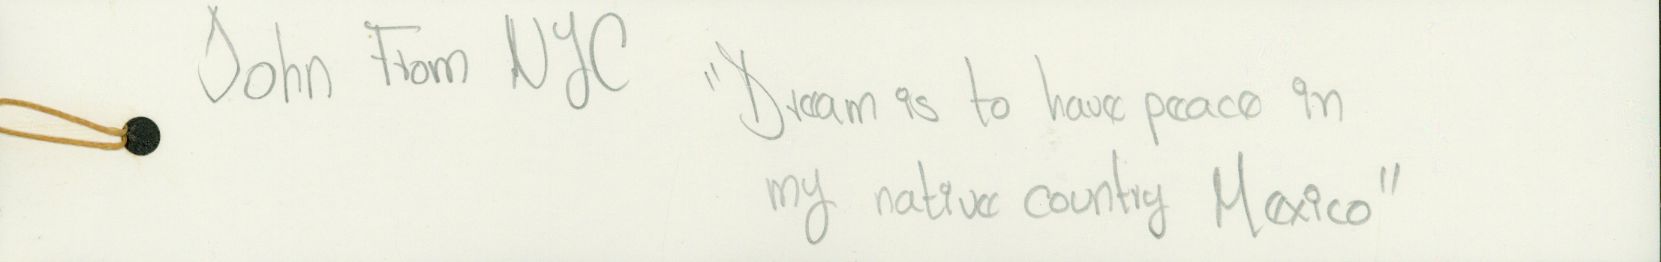 John From NYC
"Dream is to have peace in
my native country Mexico"